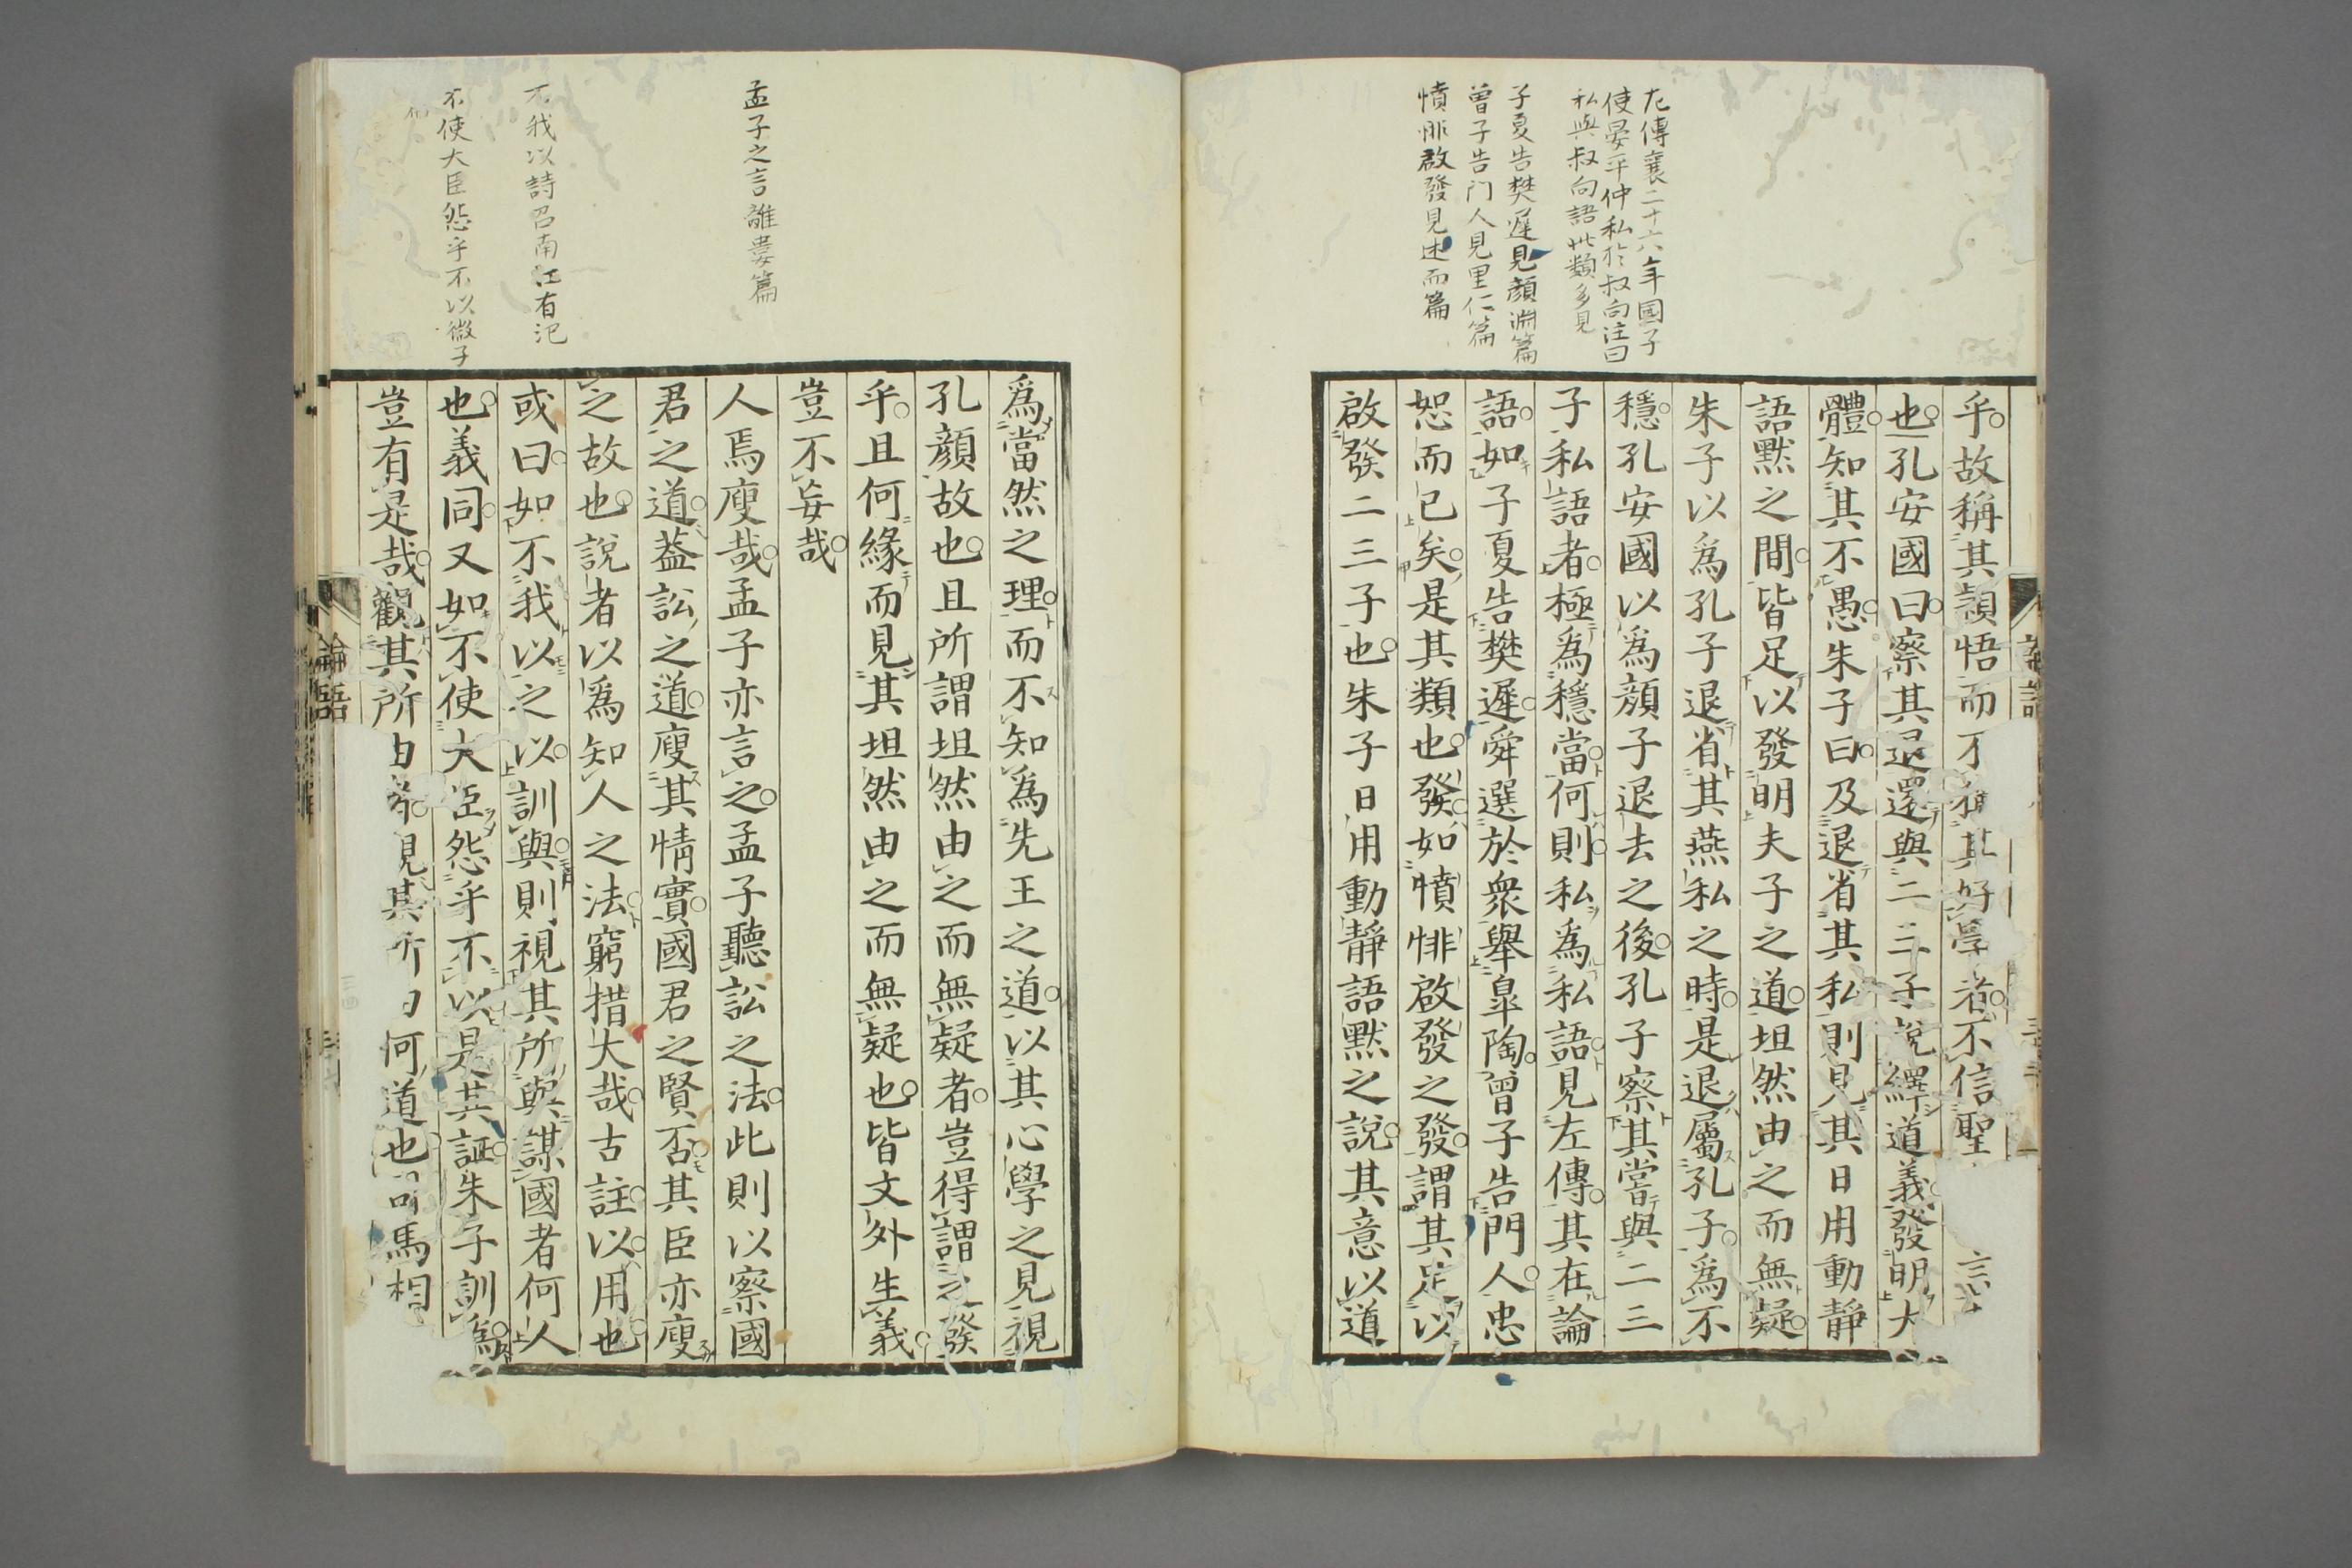 左傳襄二十六年國子
使晏平仲私於叔向注曰
私與叔向語此類多見
子夏告樊遲見顏淵篇
曾子告门人見里仁篇
憤悱啟發見述而篇
乎故稱其穎悟而不稱其好學者不信聖
也孔安國曰察其退還與二三子說繹道義發明大
體知其不愚朱子曰及退省其私則見其日用動靜
語默之間皆足以發明夫子之道坦然由之而無疑
朱子以爲孔子退省其燕私之時是退屬孔子爲不
穩孔安國以爲顏子退去之後孔子察其嘗與二三
子私語者極爲穩當何則私爲私語見左傳其在論
語如子夏告樊遲舜選於衆舉皐陶曾子告門人忠
恕而已矣是其類也發如憤悱啟發之發謂其足以
啟發二三子也朱子日用動靜語默之說其意以道
孟子之言離婁篇
不我以詩召南江有汜
不使大臣怨乎不以微子
爲當然之理而不知爲先王之道以其心學之見視
孔顏故也且所謂坦然由之而無疑者豈得謂之發
乎且何緣而見其坦然由之而無疑也皆文外生義
豈不妄哉
人焉廋哉孟子亦言之孟子聽訟之法此則以察國
君之道葢訟之道廋其情實國君之賢否其臣亦廋
之故也說者以爲知人之法窮措大哉古註以用也
或曰如不我以之以訓與則視其所與謀國者何人
也義同又如不使大臣怨乎不以是其証朱子訓爲
豈有是哉觀其所由 視其 由何道也司馬相
論語